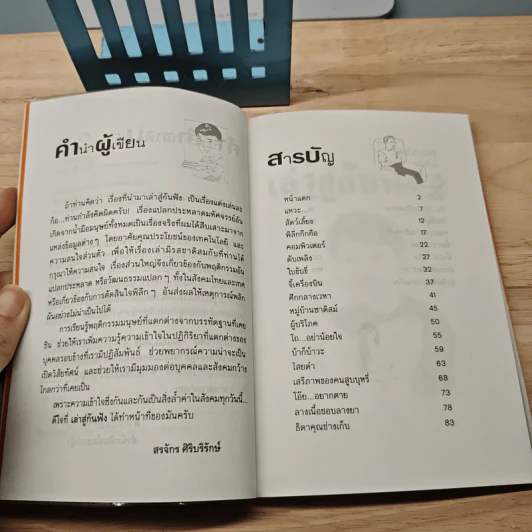 คำนำผู้เขียน
ถ้าท่านคิดว่า เรื่องที่นำมาเล่าสู่กันฟัง เป็นเรื่องแต่งเล่นละ
ก้อ...ท่านกำลังคิดผิดครับ! เรื่องแปลกประหลาดมหัศจรรย์อัน
เกิดจากน้ำมือมนุษย์ทั้งหมดเป็นเรื่องจริงที่ผมได้สืบเสาะมาจาก
แหล่งข้อมูลต่างๆ โดยอาศัยคุณประโยชน์ของเทคโนโลยี และ
ความสนใจส่วนตัว เพื่อให้เรื่องเล่ามีรสชาติสมกับที่ท่านได้
กรุณาให้ความสนใจ เรื่องส่วนใหญ่จึงเกี่ยวข้องกับพฤติกรรมอัน
แปลกประหลาด หรือวัฒนธรรมแปลกๆ ทั้งในสังคมไทยและเทศ
หรือเกี่ยวข้องกับการคิดสินใจพิลึกๆ อันส่งผลให้เหตุการณ์พลิก
ผันอย่างไม่น่าเป็นไปได้
การเรียนรู้พฤติกรรมมนุษย์ที่แตกต่างจากบรรทัดฐานที่เคย
ชิน ช่วยให้เราเพิ่มความรู้ความเข้าใจในปฏิกิริยาที่แตกต่างของ
บุคคลรอบข้างที่เรามีปฏิสัมพันธ์ ช่วยพยากรณ์ความน่าจะเป็น
เปิดวิสัยทัศน์ และช่วยให้เรามีมุมมองต่อบุคคลและสังคมกว้าง
ไกลกว่าที่เคยเป็น
เพราะความเข้าใจซึ่งกันและกันเป็นสิ่งล้ำค่าในสังคมทุกวันนี้...
ดีใจที่ เล่าสู่กันฟัง ได้ทำหน้าที่ของมันครับ
สรจักร ศิริบริรักษ์
สารบัญ
หน้าแตก 2
แหวะ... 7
สัตว์เลี้ยง 12
พิลึกกึกกือ 17
คอมพิวเตอร์ 22
ดับเพลิง 27
ใบขับขี่ 32
จี้เครื่องบิน 37
ศึกกลางเวหา 41
หมู่บ้านซาดิสม์ 45
ผู้บริโภค 50
โถ...อย่าน้อยใจ 55
บ้าก็บ้าวะ 59
ไสยดำ 63
เสรีภาพของคนสูบบุหรี่ 68
โอ๊ย...อยากตาย 73
ลางเนื้อชอบลางยา 78
ธิดาคุณช่างเก็บ 83